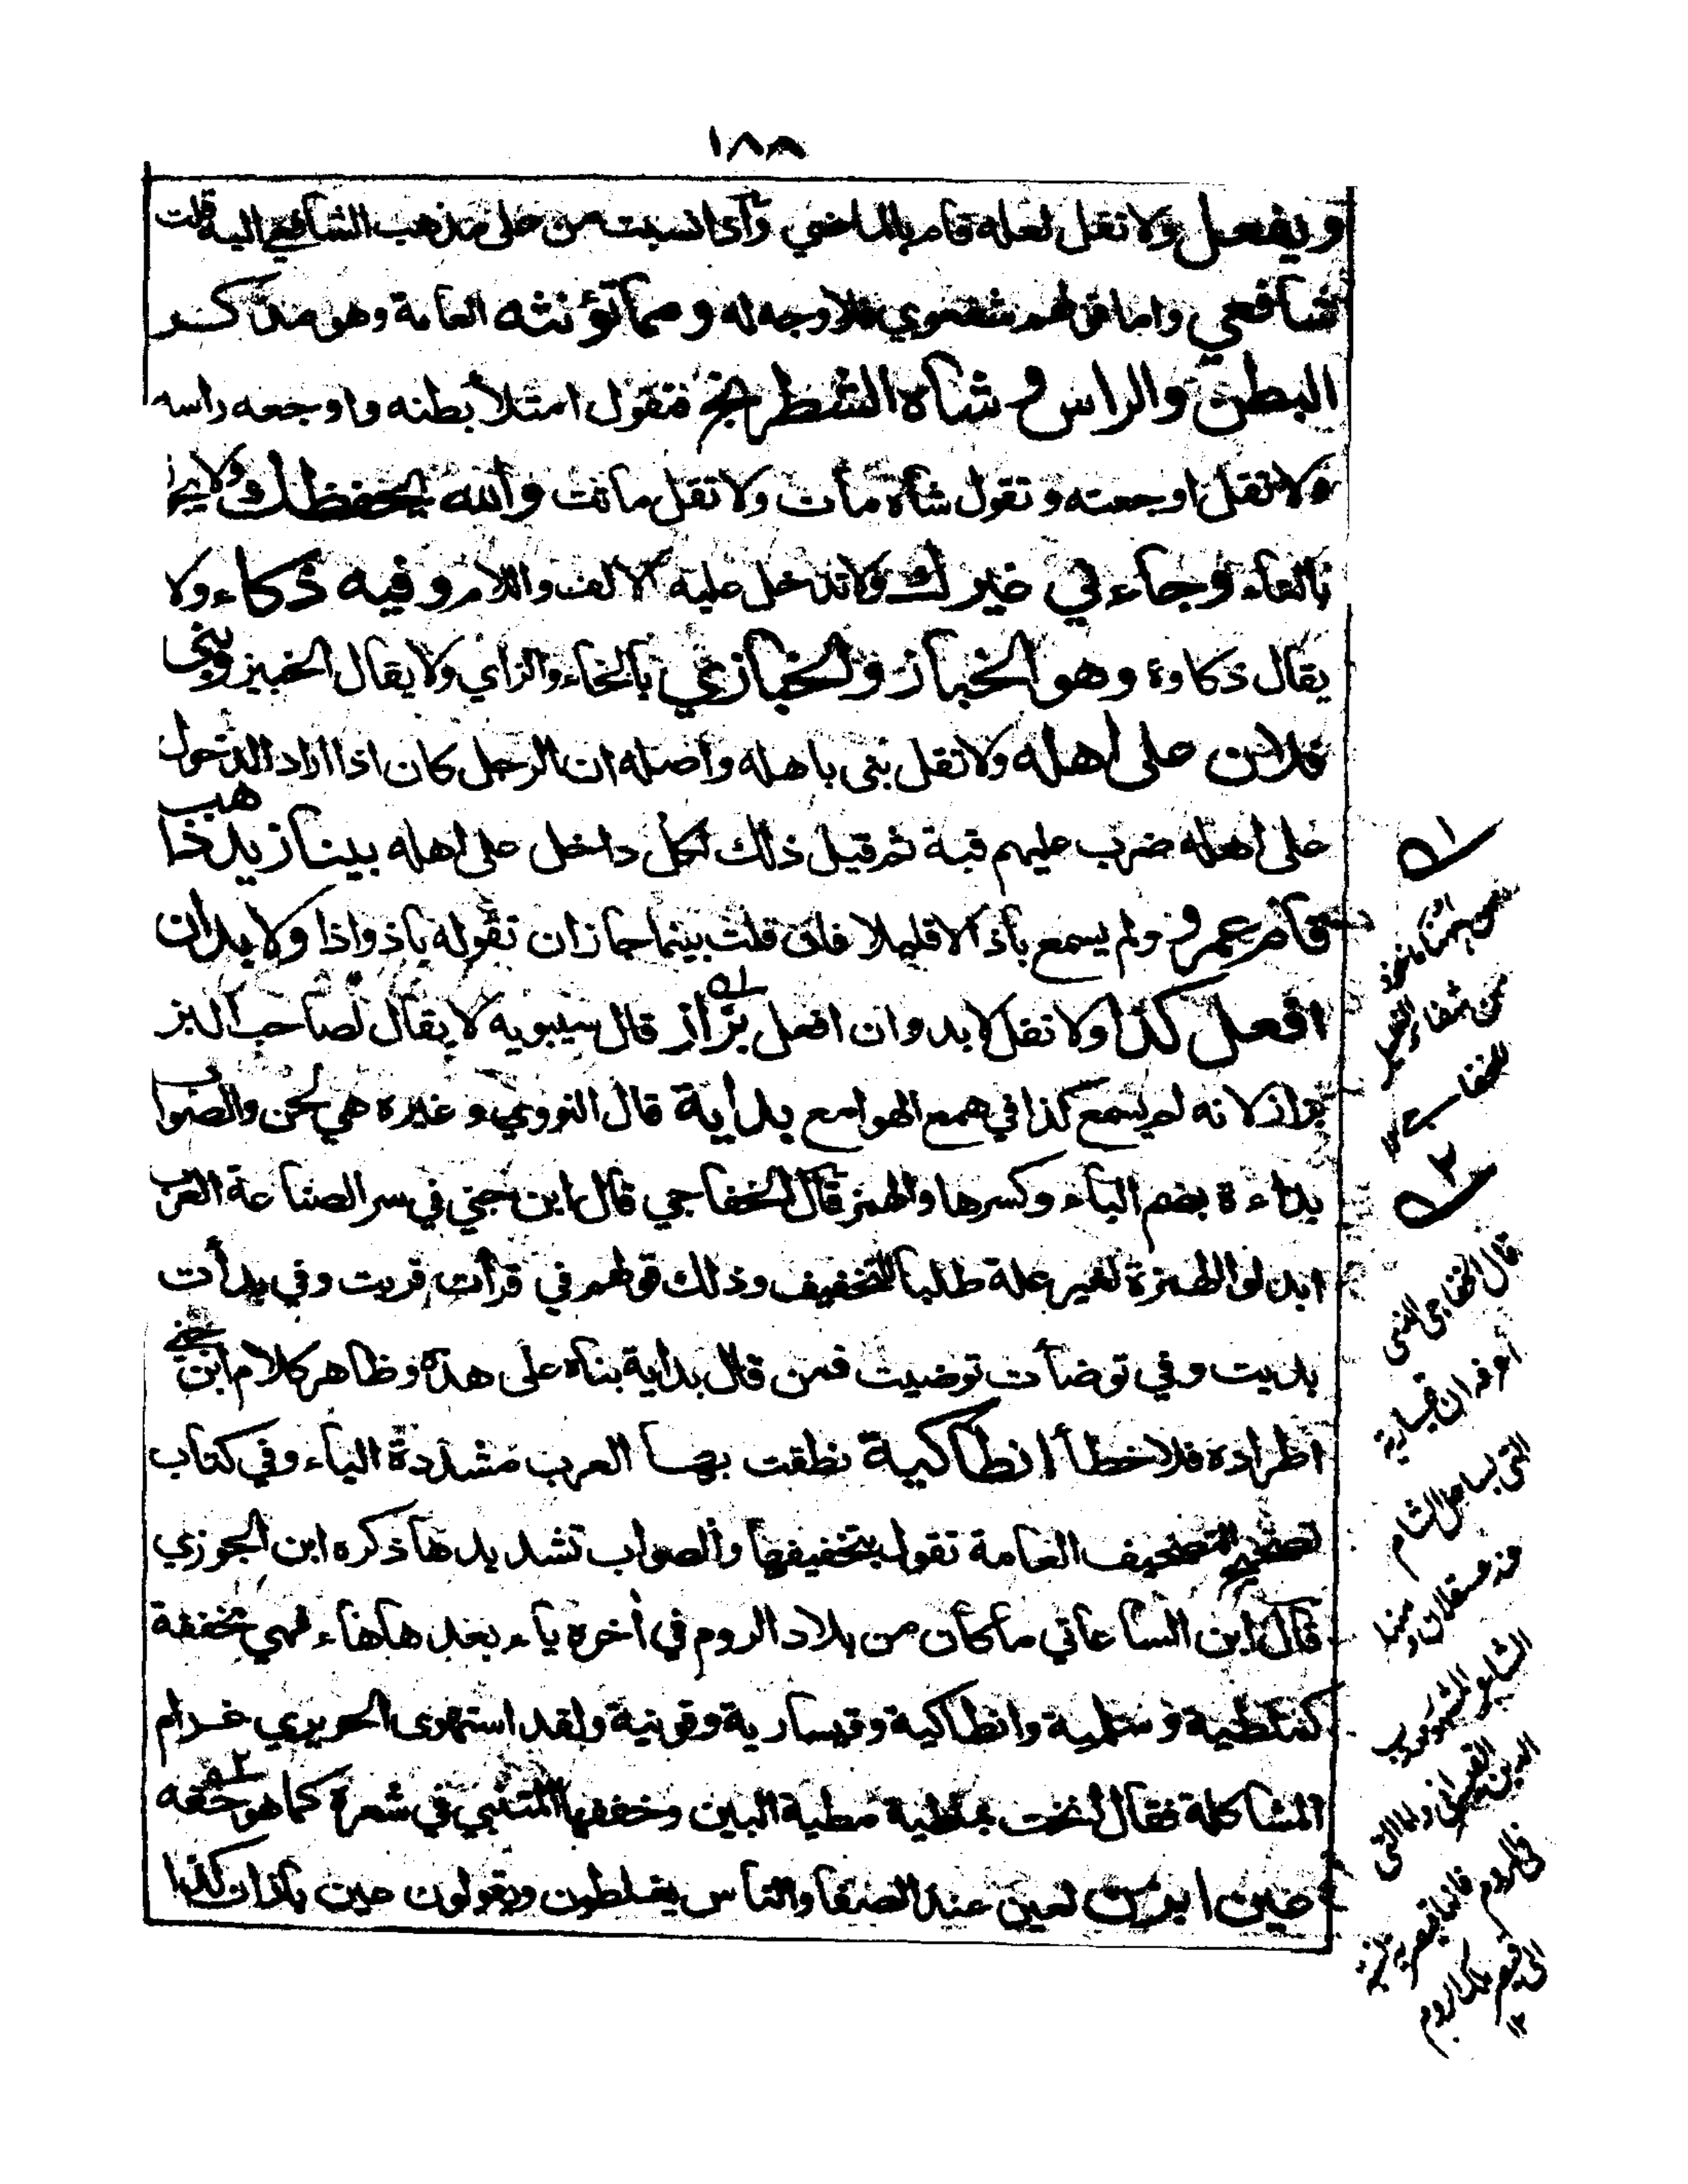 ١٨٨
ويفعل ولا تقل لعله قام بالماضي وأذا نسبت من على مذهب الشافعي اليه قلت
شافعي واما قولهم شفعوي فلا وجه له ومما تؤنثه العامة وهو مذكر
البطن والراس وشاه الشطرنج فتقول امتلأ بطنه واوجعه راسه
ولا تقل اوجعته وتقول شاه مات ولا تقل ماتت والله يحفظك ولا
بالتاء وجاءني غيرك ولا تدخل عليه الالف واللام وفيه ذكاء ولا
يقال ذكاوة وهو الخباز والخبازي بالخاء والزاي ولا يقال الخبيز وبنى
فلان على اهله ولا تقل بنى باهله واصله ان الرجل كان اذا اراد الدخول
على اهله ضرب عليهم قبة ثم قيل ذلك لكل داخل على اهله بينا زيد ذاهب
قام عمرو ولم يسمع بأذ الا قليلا فان قلت بينما جاز ان تقوله باذ واذا ولا بد ان
افعل كذا ولا تقل لا بد وان افعل بزاز قال سيبويه لا يقال لصاحب البز
بزاز لانه لم يسمع كذا في همع الهوامع بداية قال النووي وغيره هي لحن والصواب
بداءة بضم الباء وكسرها والهمز قال الخفاجي قال ابن جني في سر الصناعة العرب
ابدلوا الهمزة لغير علة طلبا للتخفيف وذلك قولهم في قرأت قريت وفي بدأت
بديت وفي توضأت توضيت فمن قال بداية بناه على هذه وظاهر كلام ابن جني
اطراده فلا خطأ انطاكية نطقت بها العرب مشددة الياء وفي كتاب
تصحيح التصحيف العامة تقول بتخفيفها والصواب تشديدها ذكره ابن الجوزي
قال ابن الساعاتي ما كان من بلاد الروم في أخره ياء بعدها هاء فهي مخففة
كملطية وسلمية وانطاكية وقيسارية وقونية ولقد استهوى الحريري غرام
المشاكلة فقال أنخت بملطية مطية البين وخففها المتنبي في شعره كما هو حقه
عين ابزن لعين عند الصفا والناس يغلطون ويقولون عين بازان كذا
١
من شفاء الغليل
للخفاجي
٢
قال الخفاجي الذي
أعرفه ان قيسارية
التي بساحل الشام